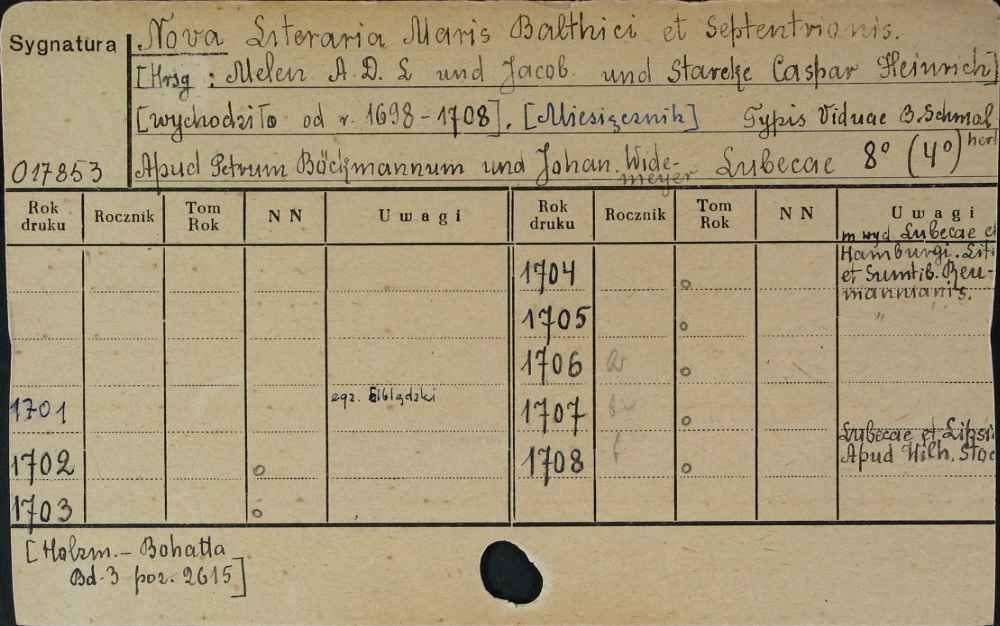 Sygnatura
Nova Literaria Maris Balthici et Septentrionis.
[Hrsg: Melen A. D. L und Jacob. und Starcke Caspar Heinrich]
[wychodziło od r. 1698-1708]. [Miesięcznik] Typis Viduae B. Schmal
hert
017853 Apud Petrum Böckmannum und Johan. Wide-
meyer Lubecae 8° (4°)
Rok druku Rocznik Tom Rok NN Uwagi Rok druku Rocznik Tom Rok NN Uwagi
m wyd Lubecae et
Hamburgi. Lit
1704 ° et Sumtib. Reu-
mannianis.
1705 ° "
1706 °
1701 egz. Elblądzki
1707 °
Lubecae et Lipsi
1702 ° 1708 ° Apud Wilh. Stoc
1703 °
[Holzm. - Bohatta
Bd. 3 poz. 2615]